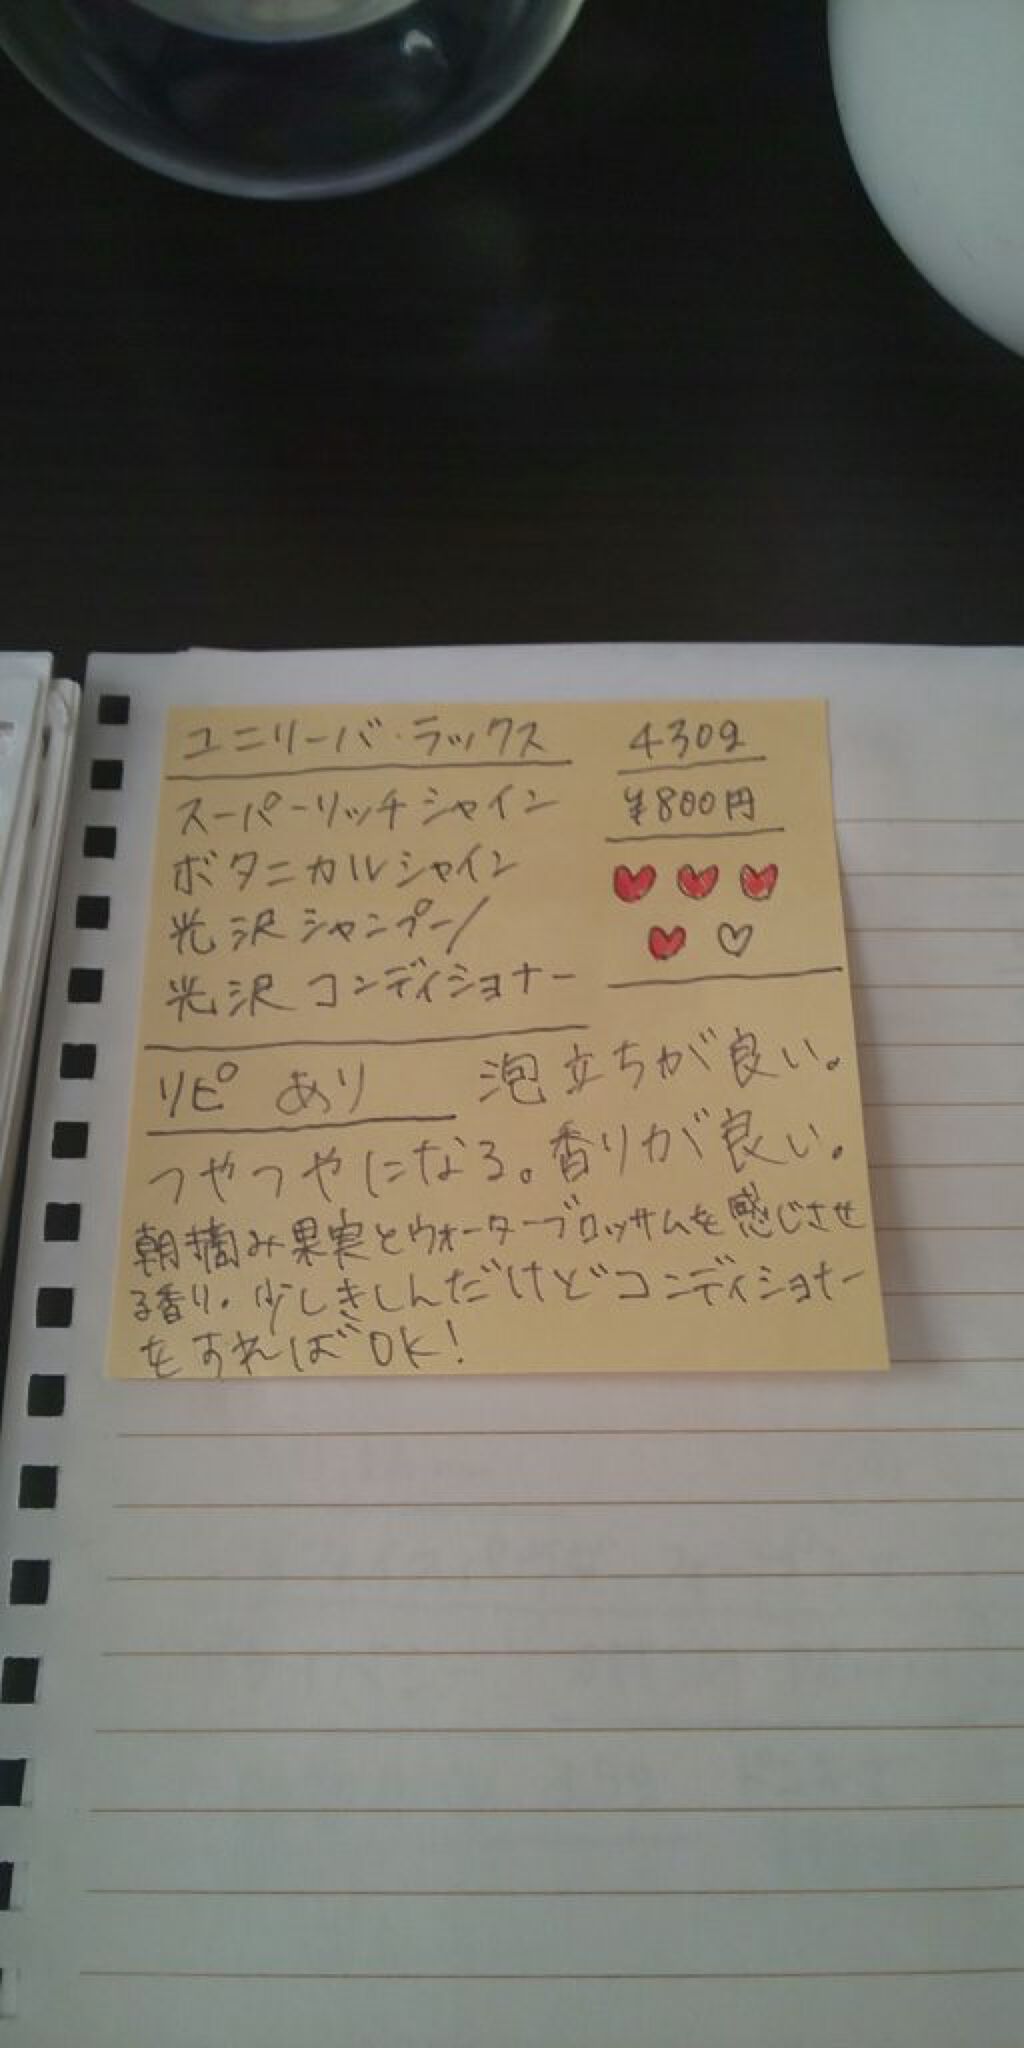 ユニリーバ・ラックス
スーパーリッチシャイン
ボタニカルシャイン
光沢シャンプー/
光沢コンディショナー
430g
¥800円
リピ あり
泡立ちが良い。
つやつやになる。香りが良い。
朝摘み果実とウォーターブロッサムを感じさせ
る香り。少しきしんだけどコンディショナー
をすればOK!